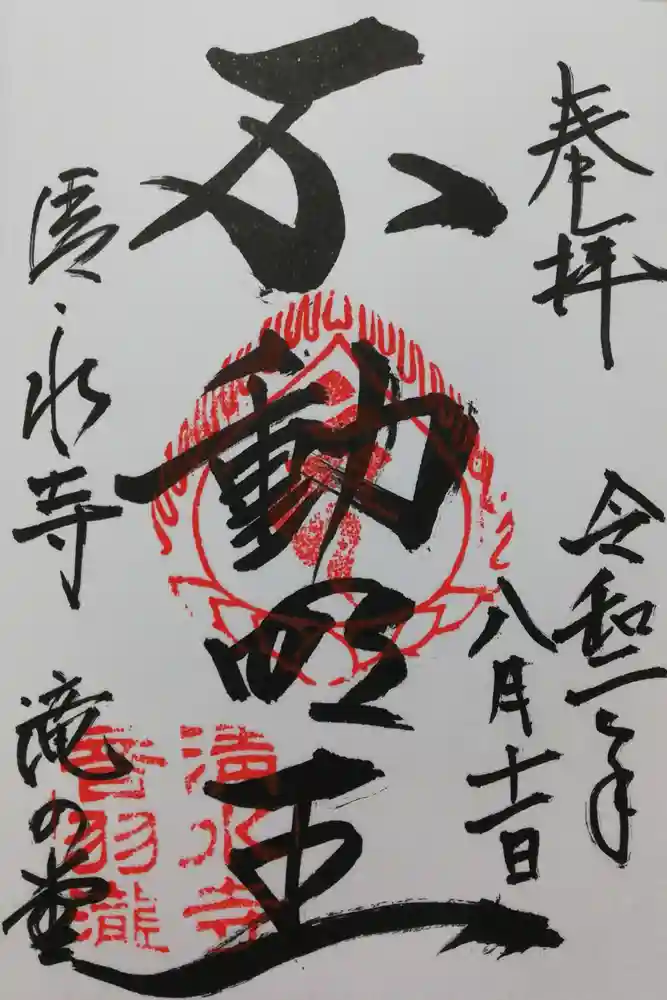 奉拝
令和二年
八月十一日
不動明王
清水寺
滝の堂
清水寺
音羽瀧